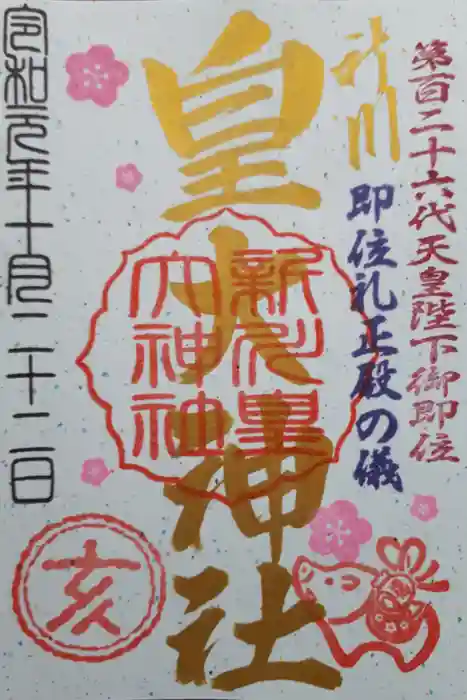 第百二十六代天皇陛下御即位
即位礼正殿の儀
新川
皇大神社
新川皇
大神社
令和元年十月二十二日
亥